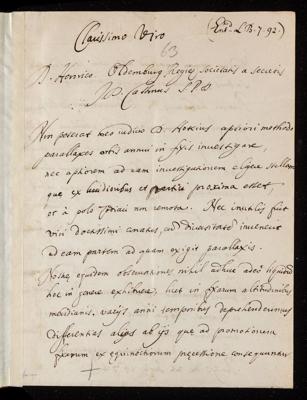 Clarissimo Viro
(Ent.d L.B. 7. 92.)
63
D. Henrico Oldemburg Regiæ Societatis a Secretis
Cassinus S P D
Non poterat meo iudicio D. Hokius aptiori methodo
parallaxes orbis annui in fixis investigare
nec aptiorem ad eam investigationem eligere stellam
quæ ex lucidioribus et proxima esset
et à polo non remota. Nec inutilis fuit
viri doctissimi conatus, cum diversitatem invenerit
ad eam partem ad quam exigit parallaxis.
Nostræ equidem observationes nihil adhuc adeo liquidum
hoc in genere exhibuere, licet in fixarum altitudinibus
meridianis, varijs anni temporibus deprehenderimus
differentias alias ab ijs quæ ad promotionem
fixarum ex equinoctiorum præcessione consequuntur